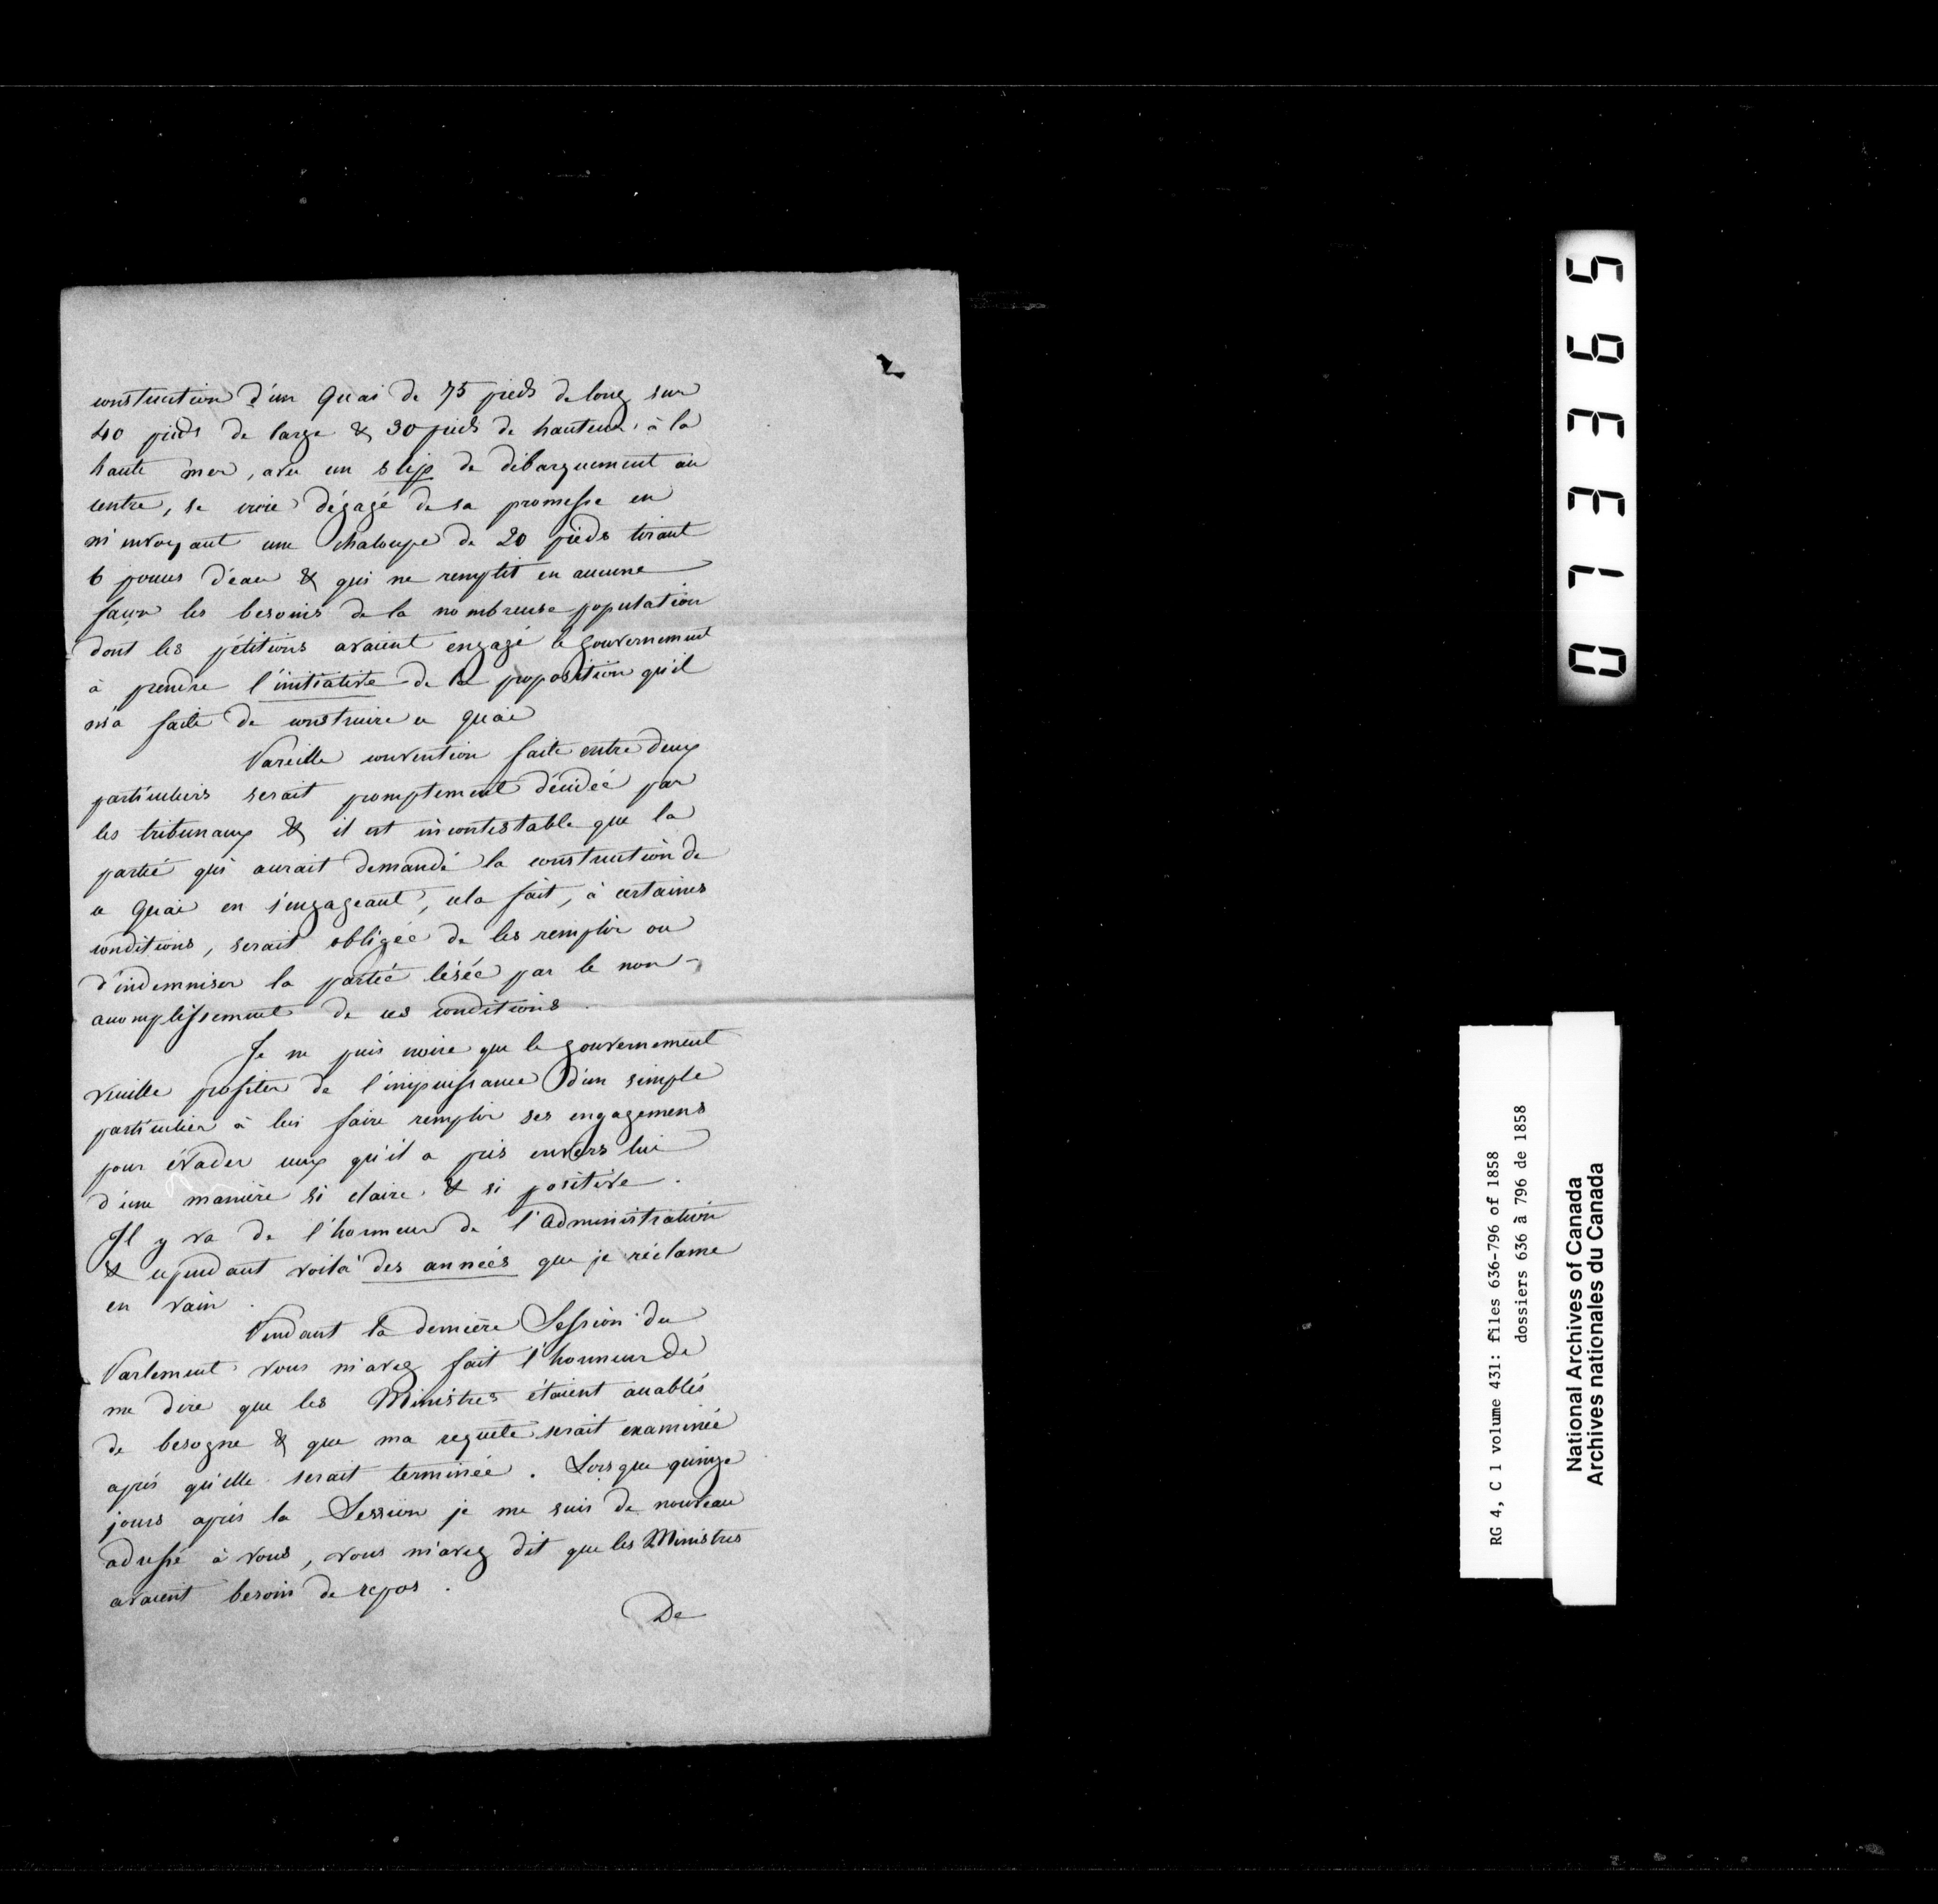 2
construction d'un Quai de 75 pieds de long sur
40 pieds de large & 30 pieds de hauteur à la
haute mer, avec un slip de débarquement au
centre, se croie dégagé de sa promesse en
m'envoyant une chaloupe de 20 pieds tirant
6 pouces d'eau & qui ne remplit en aucune
façon les besoins de la nombreuse population
dont les pétitions avaient engagé le gouvernement
à prendre l'initiative de la proposition qu'il
m'a faite de construire ce quai
Pareille convention faite entre deux
particuliers serait promptement décidée par
les tribunaux & il est incontestable que la
partie qui aurait demandé la construction de
ce Quai en s'engageant, cela fait, à certaines
conditions, serait obligée de les remplir ou
d'indemniser la partie lésée par le non-
accomplissement de ces conditions.
Je ne puis croire que le gouvernement
veuille profiter de l'impuissance d'un simple
particulier à lui faire remplir ses engagemens
pour évader ceux qu'il a pris envers lui
d'une manière si claire & si positive.
Il y va de l'honneur de l'administration
& cependant voilà des années que je réclame
en vain.
Pendant la dernière Session du
Parlement vous m'avez fait l'honneur de
me dire que les Ministres étaient accablés
de besogne & que ma requête serait examinée
après qu'elle serait terminée. Lorsque quinze
jours après la Session je me suis de nouveau
adressé à vous, vous m'avez dit que les Ministres
avaient besoin de repos.
De
073365
RG 4, C 1 volume 431: files 636-796 of 1858
dossiers 636 à 796 de 1858
National Archives of Canada
Archives nationales du Canada